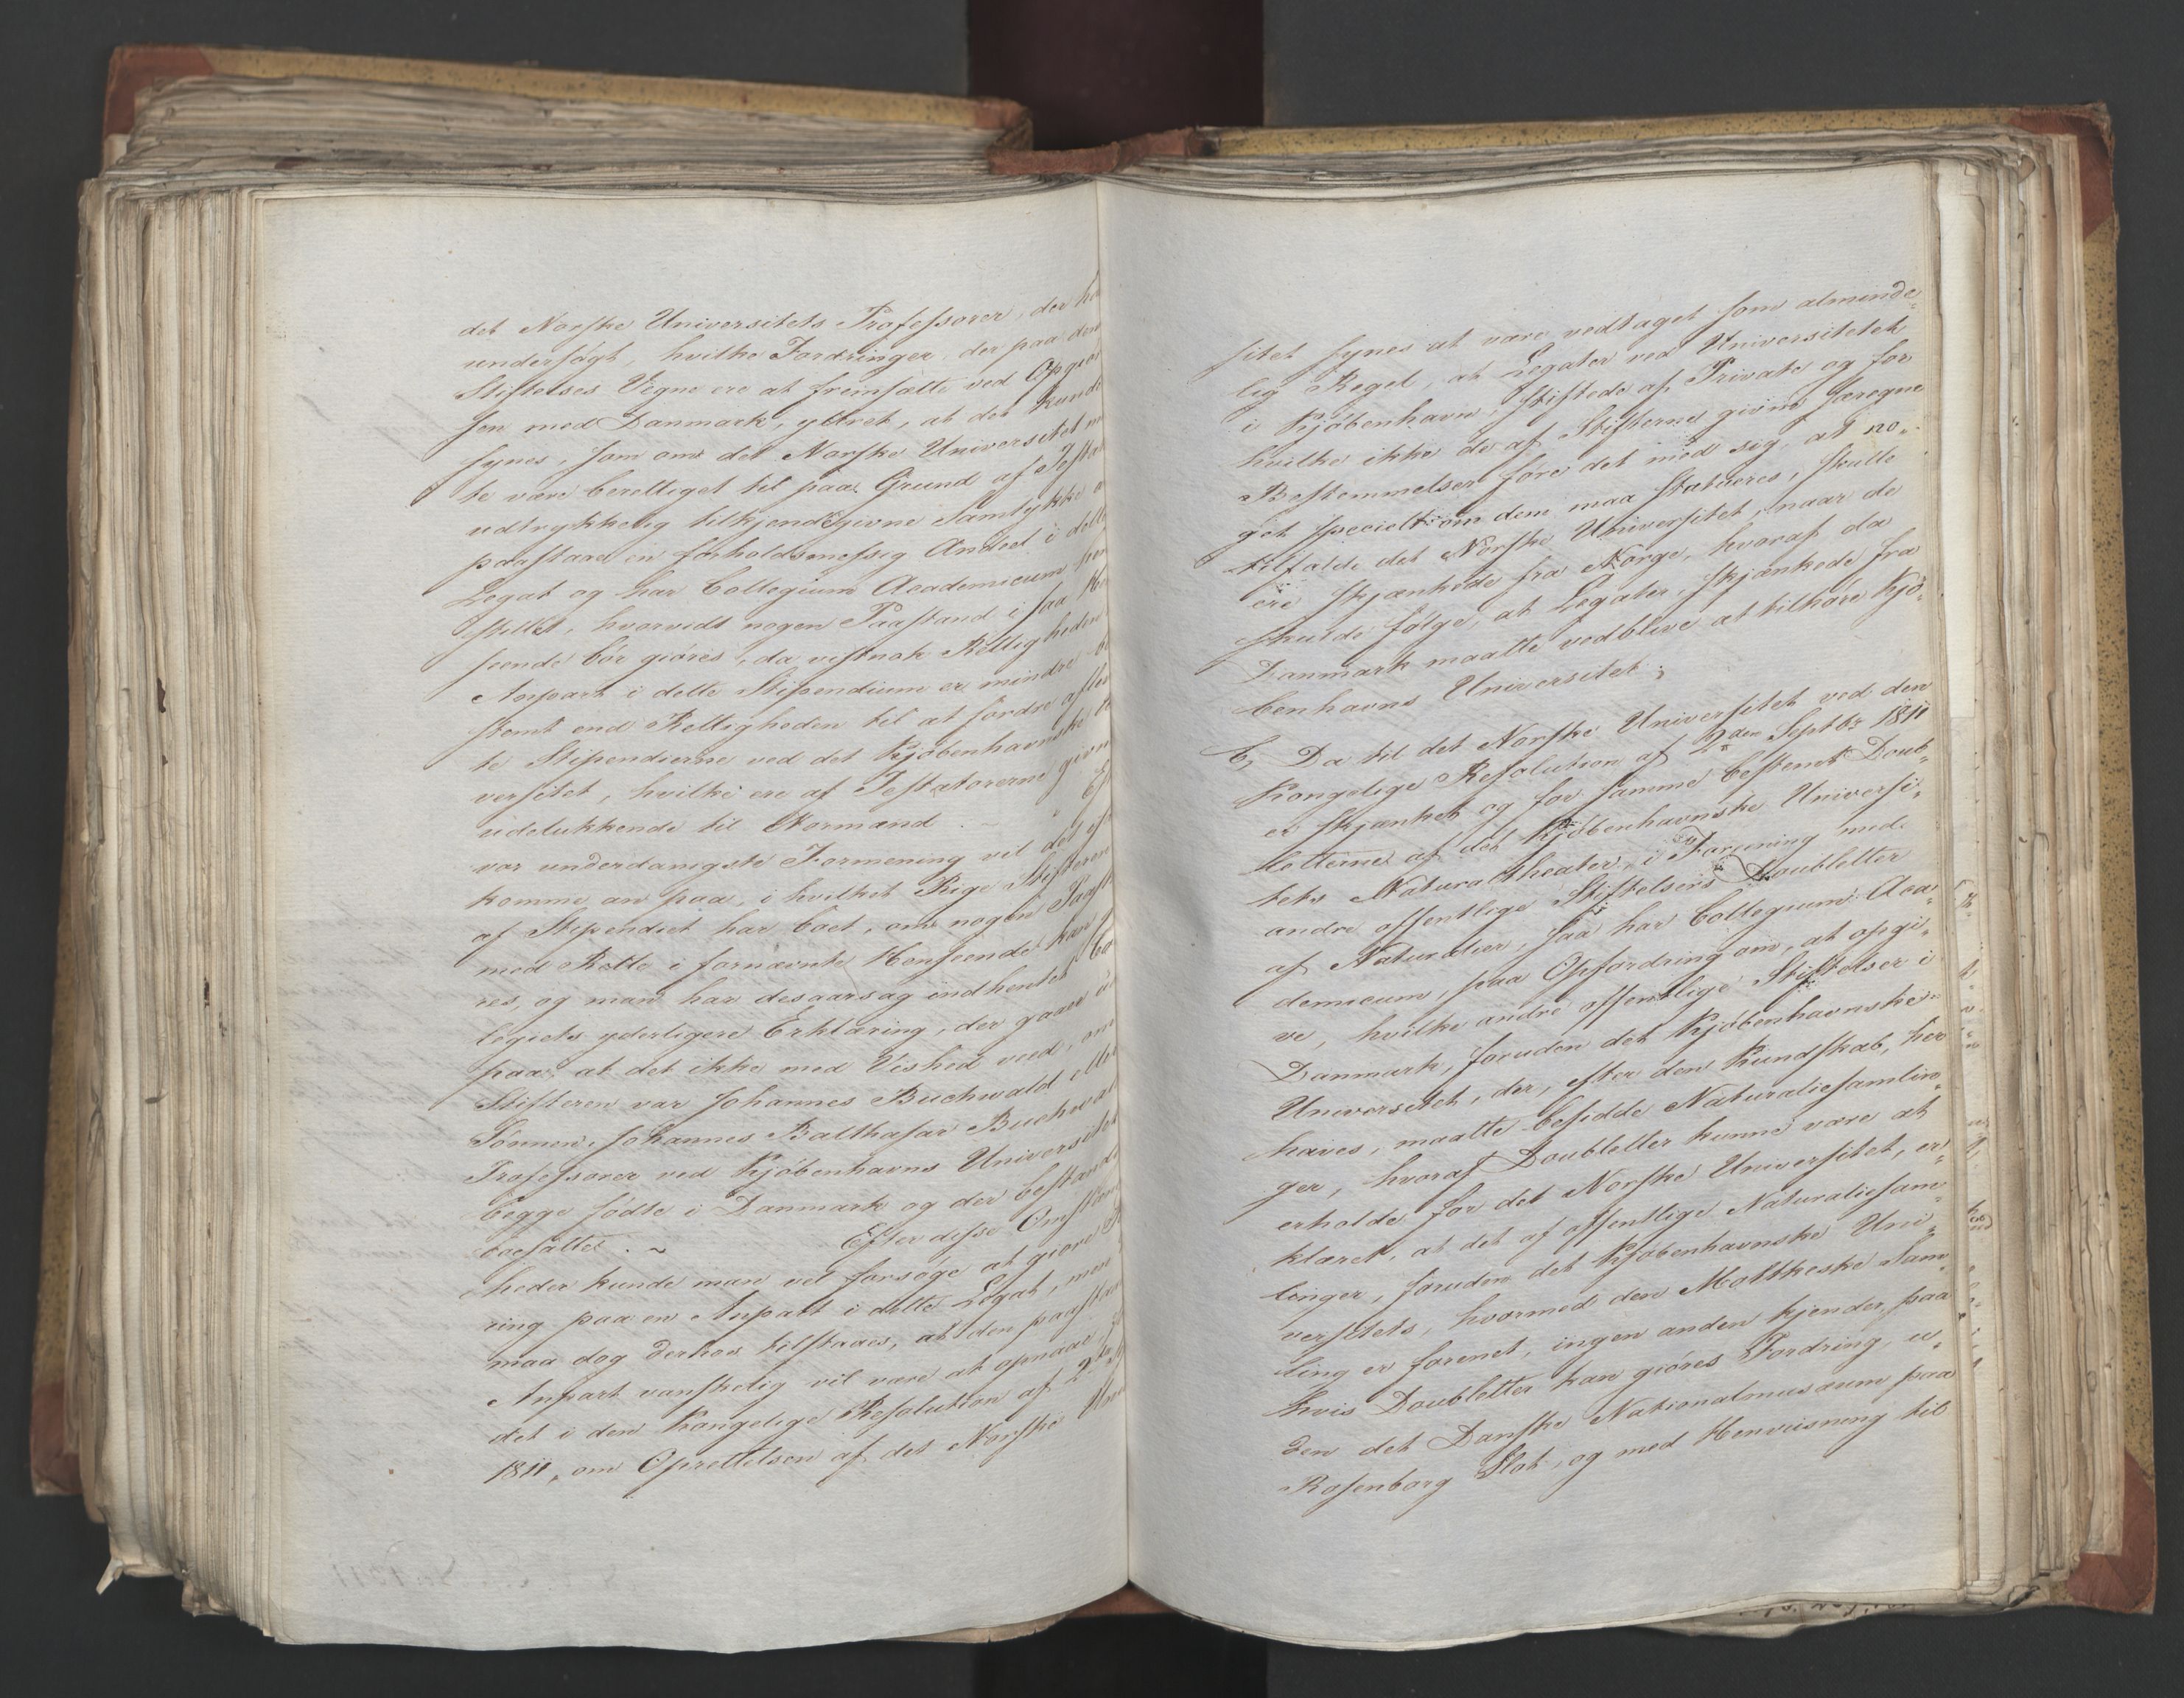 det Norske Universitets Professorer, der
undersøgt, hvilke Fordringer, der paa den
Stiftelses Vegne ere at fremsætte ved Opgiør
sen med Danmark, yttret, at det kunde
synes, som om det Norske Universitet
te være berettiget til paa Grund af Testa
udtrykkelig tilkjendegivne Samtykke
paastaae en forholdsmessig Andeel i dette
Legat og har Collegium Academicum
stillet, hvorvidt nogen Paastand i saa He
seende bør giøres, da vistnok Rettigheden
Anpart i dette Stipendium er mindre be
stemt end Rettigheden til at fordre afsta
te Stipendierne ved det Kjøbenhavnske
versitet, hvilke ere af Testatorerne givne
udelukkende til Normænd. — Ef
vor underdanigste Formening vil det
komme an paa, i hvilket Rige Stifteren
af Stipendiet har boet, om nogen Paast
med Rette i fornævnte Henseende kan
res, og man har desaarsag indhentet Co
legiets yderligere Erklæring, der gaaer ud
paa, at det ikke med Vished veed, om
Stifteren var Johannes Buchwald eller
Sønnen, Johannes Balthasar Buchwald
Professorer ved Kjøbenhavns Universitet
begge fødte i Danmark og der bestandig
boesatte. ~ Efter disse Omstæn
heder kunde man vel forsøge at giøre
ring paa en Anpart i dette Legat, men
maa dog derhos tilstaaes, at den paastaa
Anpart vanskelig vil være at opnaae,
det i den Kongelige Resolution af 2den
1811, om Oprettelsen af det Norske Univ
sitet synes at være vedtaget som alminde-
lig Regel, at Legater ved Universitetet
i Kjøbenhavn, stiftede af Private og for
hvilke ikke de af Stifterne givne særegne
Bestemmelser føre det med sig, at no-
get specielt om dem maa statueres, skulle
tilfalde det Norske Universitet, naar de
ere skjænkede fra Norge, hvoraf da
skulde følge, at Legater, skjænkede fra
Danmark maatte vedblive at tilhøre Kjø-
benhavns Universitet;
b, Da til det Norske Universitet ved den
Kongelige Resolution af 2den Septbr 1811
er skjænket og for samme bestemt Doub-
letterne af det Kjøbenhavnske Universi-
tets Naturaltheater, i Forening med
andre offentlige Stiftelsers Doubletter
af Naturalier, saa har Collegium Aca-
demicum, paa Opfordring om, at opgi-
ve, hvilke andre offentlige Stiftelser i
Danmark, foruden det Kjøbenhavnske
Universitet, der, efter den Kundskab, her
haves, maatte besidde Naturaliesamlin-
ger, hvoraf Doubletter kunne være at
erholde for det Norske Universitet, er-
klæret, at det af offentlige Naturaliesam-
linger, foruden det Kjøbenhavnske Uni-
versitets, hvormed den Moltkeske Sam-
ling er forenet, ingen anden kjender, paa
hvis Doubletter kan giøres Fordring, u-
den det Danske Nationalmusæum paa
Rosenborg Slot, og med Henviisning til